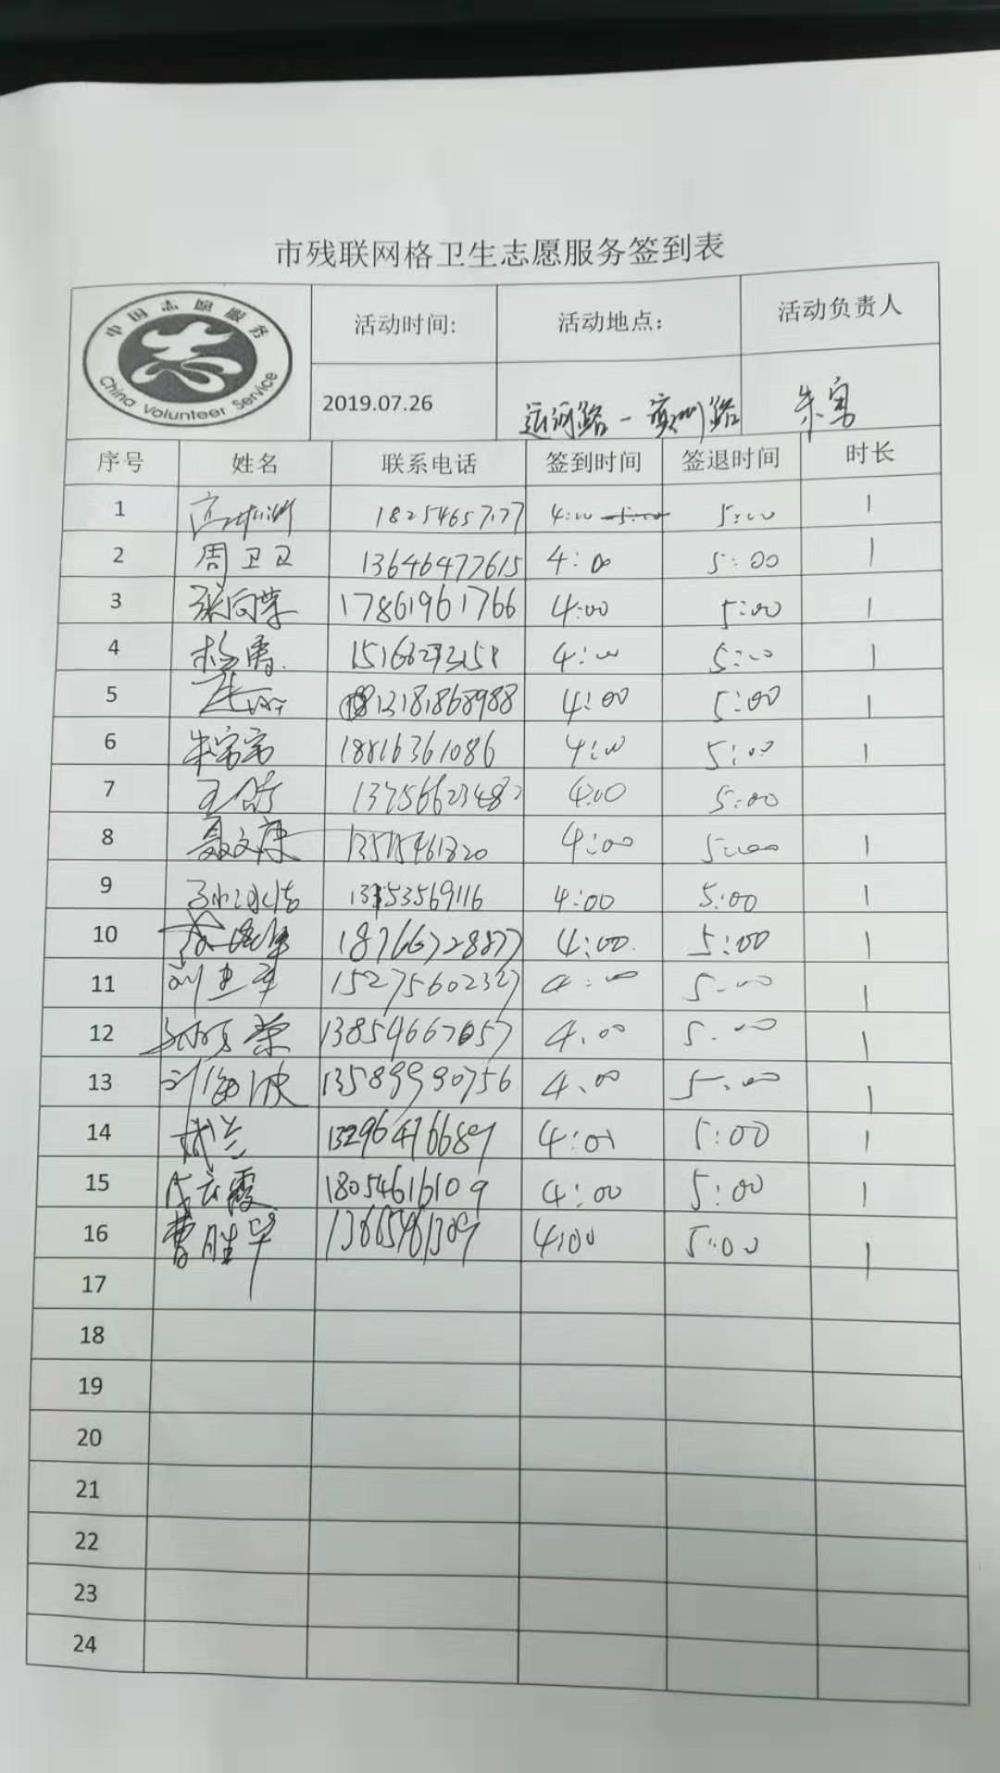 市残联网格卫生志愿服务签到表
中国志愿服务
China Volunteer Service
活动时间: 活动地点: 活动负责人
2019.07.26 运河路-黄河路
序号 姓名 联系电话 签到时间 签退时间 时长
1 4:00 5:00 1
2 周卫卫 13646477615 4:00 5:00 1
3 张向荣 17861961766 4:00 5:00 1
4 杨青 4:00 5:00 1
5 4:00 5:00 1
6 18816361086 4:00 5:00 1
7 4:00 5:00
8 聂文康 13515461820 4:00 5:00 1
9 4:00 5:00 1
10 18766728877 4:00 5:00 1
11 刘卫军 15275602327 4:00 5:00 1
12 13854667057 4.00 5.00 1
13 刘海波 13589990756 4.00 5.00 1
14 13296476689 4:01 5:00 1
15 18054616109 4:00 5:00 1
16 曹胜华 4:00 5:00 1
17
18
19
20
21
22
23
24